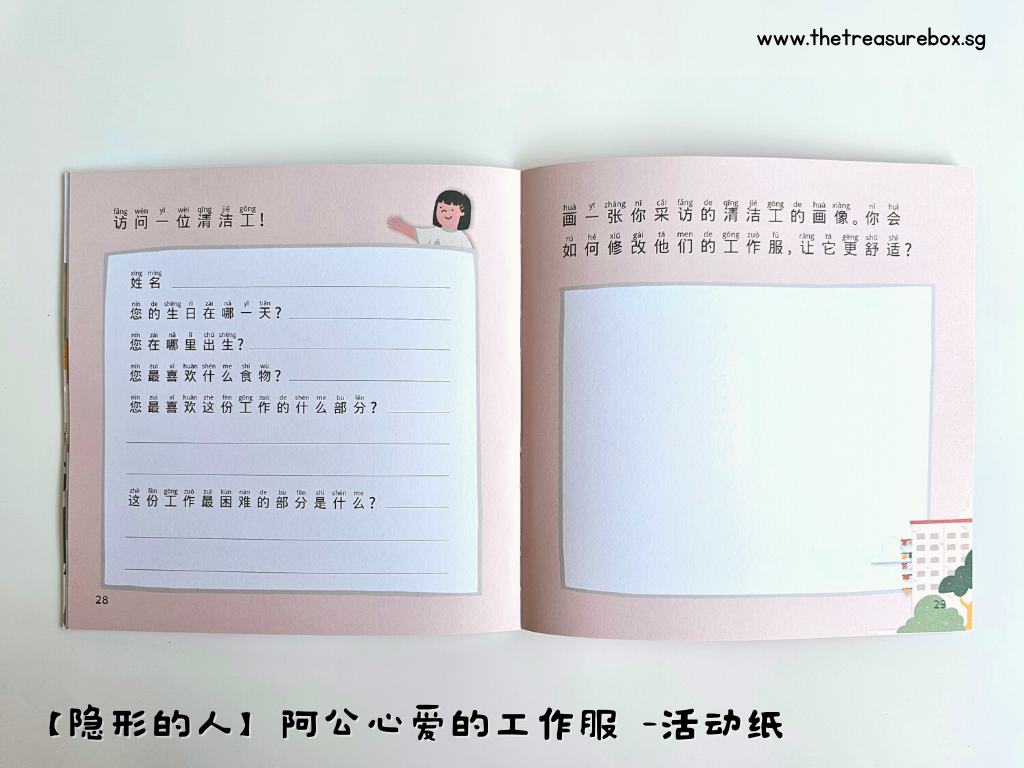 www.thetreasurebox.sg
fǎng wèn yí wèi qīng jié gōng
访问一位清洁工！
xìng míng
姓名
nín de shēng rì zài nǎ yì tiān
您的生日在哪一天？
nín zài nǎ lǐ chū shēng
您在哪里出生？
nín zuì xǐ huān shén me shí wù
您最喜欢什么食物？
nín zuì xǐ huān zhè fèn gōng zuò de shén me bù fēn
您最喜欢这份工作的什么部分？
zhè fèn gōng zuò zuì kùn nán de bù fēn shì shén me
这份工作最困难的部分是什么？
28
huà yì zhāng nǐ cǎi fǎng de qīng jié gōng de huà xiàng nǐ huì
画一张你采访的清洁工的画像。你会
rú hé xiū gǎi tā men de gōng zuò fú ràng tā gèng shū shì
如何修改他们的工作服，让它更舒适？
29
【隐形的人】阿公心爱的工作服 -活动纸